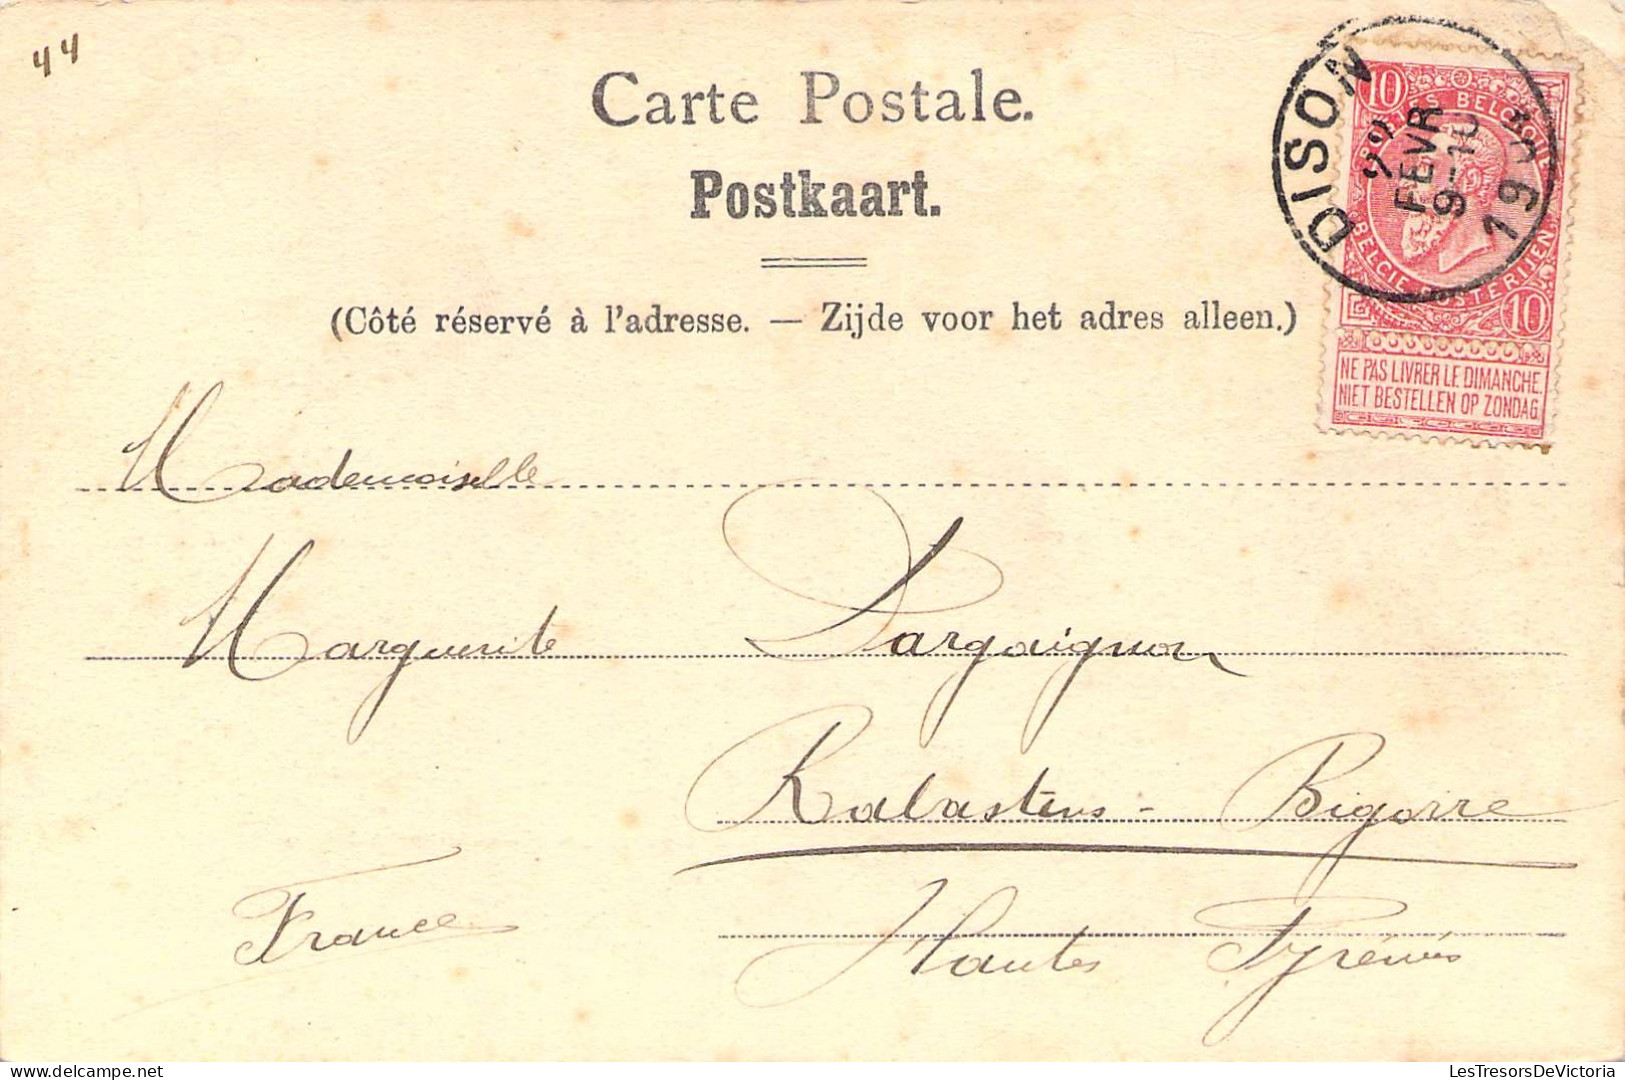 44
Carte Postale.
Postkaart.
(Côté réservé à l'adresse. — Zijde voor het adres alleen.)
DISON
22
FÉVR
9-10
10
POSTES BELGIQUE
BELGIE POSTERIJEN
10
NE PAS LIVRER LE DIMANCHE
NIET BESTELLEN OP ZONDAG
Mademoiselle
Marguerite Dargaignon
Rabastens-Bigorre
Hautes Pyrénées
France
LesTresorsDeVictoria